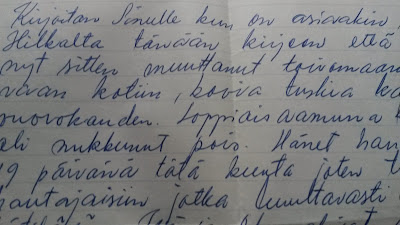 Kirjoitan Sinulle kun on asiavakin
Hilkalta tänään kirjeen että
nyt sitten muuttanut toivomaan
vivan kotiin, kovia tuskia ka
vuorokauden. Loppiaisaamuna
oli nukkunut pois. Hänet hau
19 päivänä tätä kuuta joten
hautajaisiin jotka